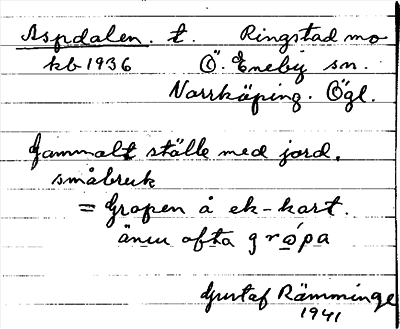 Aspdalen. t. Ringstad mo
kb 1936 Ö. Eneby sn.
Norrköping. Ögl.
Gammalt ställe med jord.
småbruk
= Gropen å ek-kart.
ännu ofta grópa
Gustaf Rämminge
1941